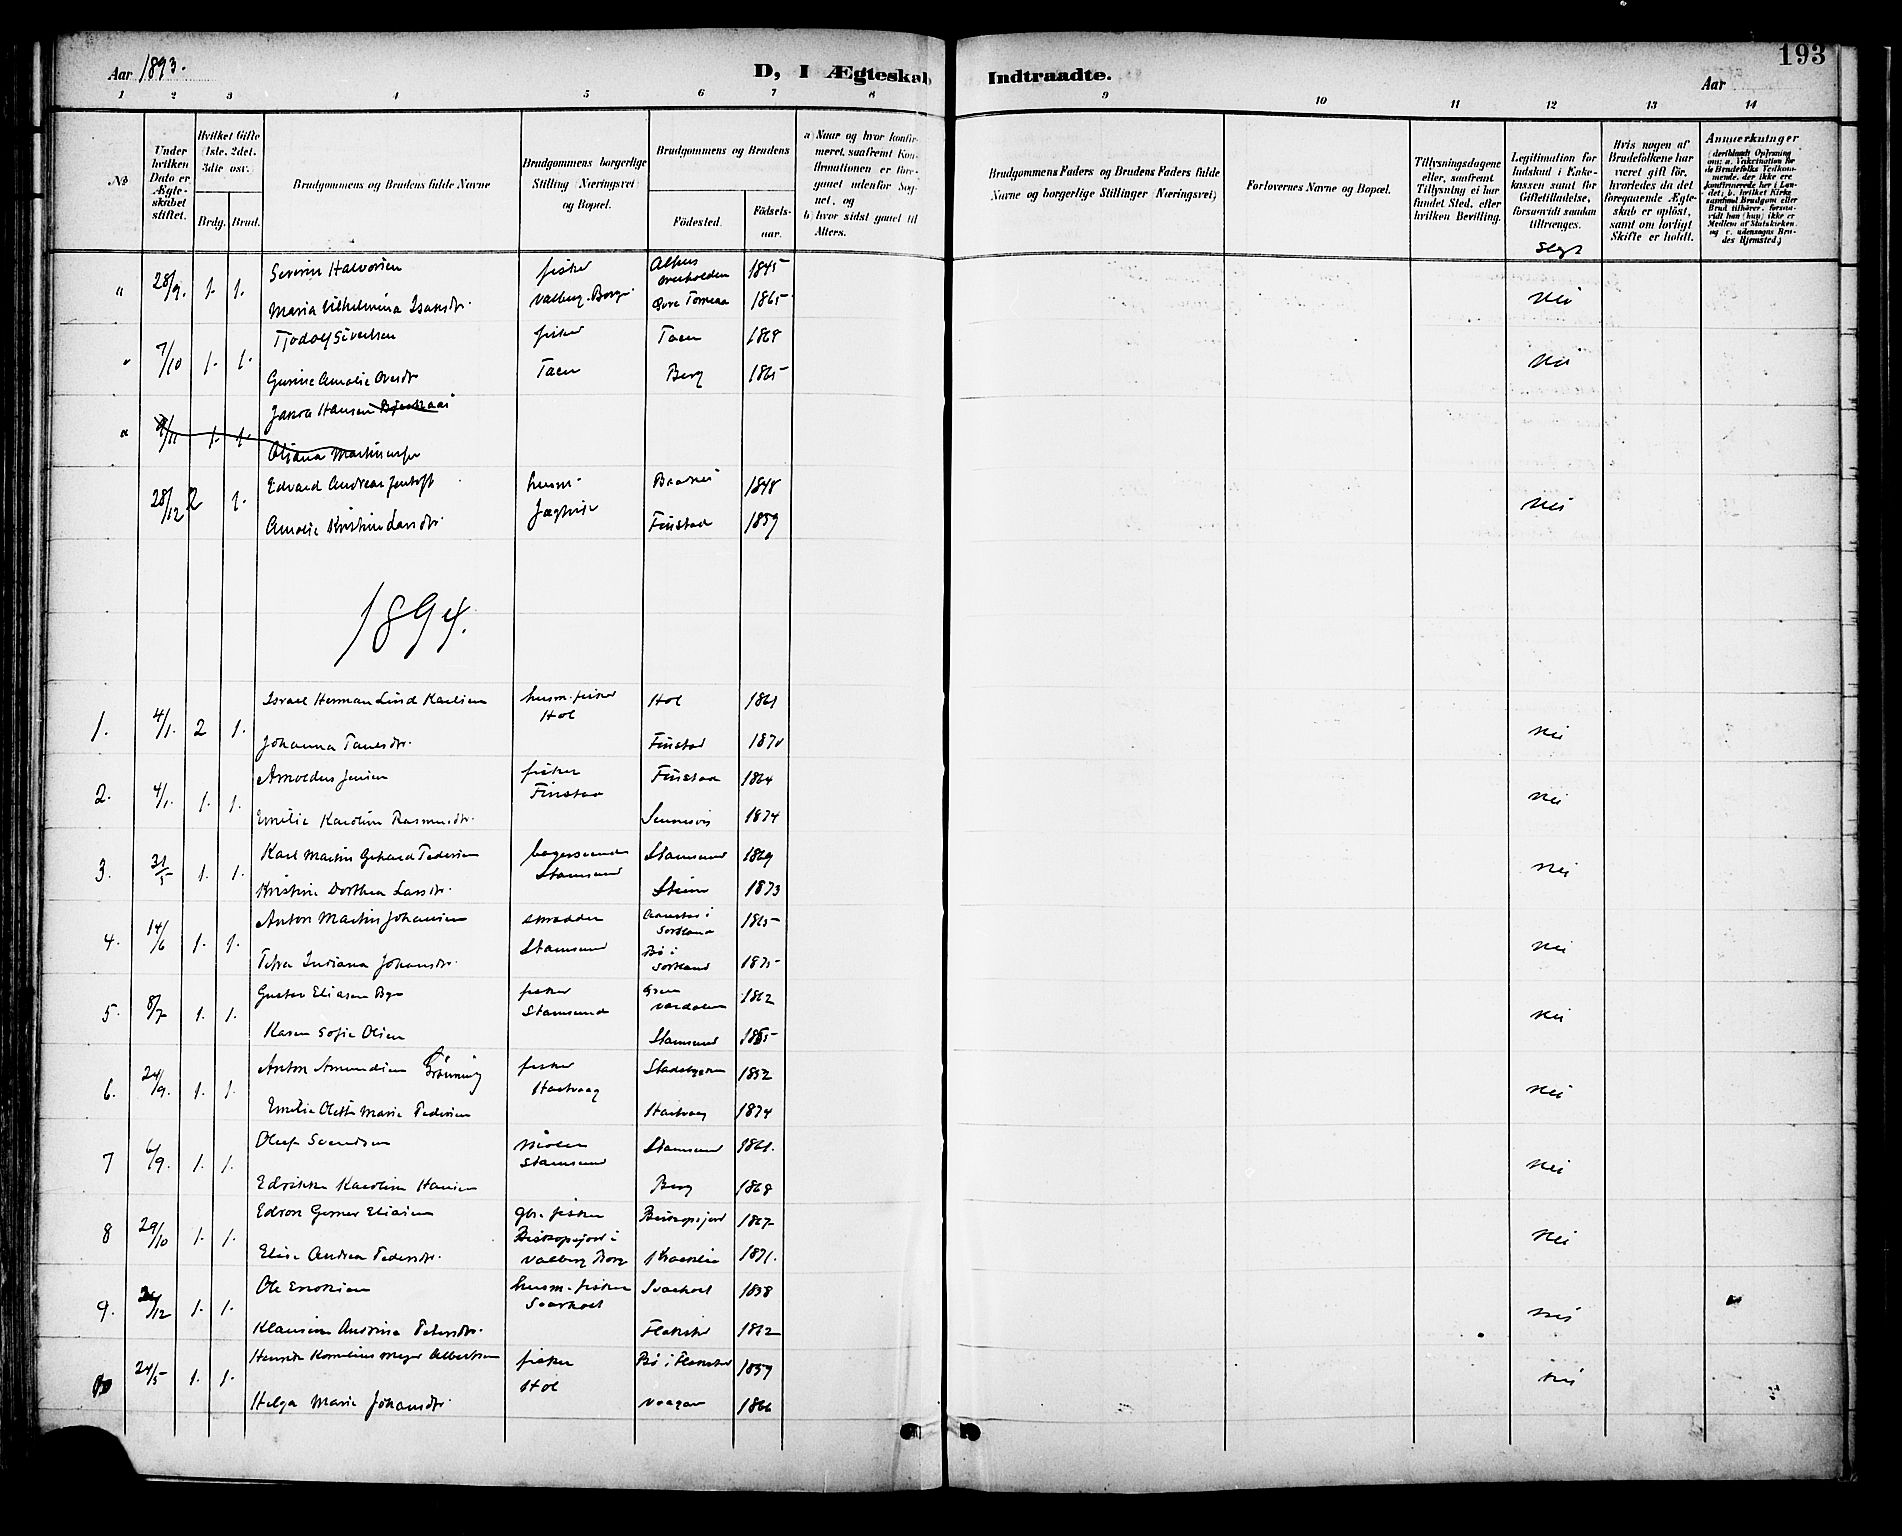 193
Aar 1893.
D, I Ægteskab Indtraadte.
Aar
1 2 3 4 5 6 7 8 9 10 11 12 13 14
No
Under hvilken Dato er Ægteskabet stiftet.
Hvilket Gifte (1ste, 2det, 3die osv.
Brdg. Brud.
Brudgommens og Brudens fulde Navne
Brudgommens borgerlige Stilling (Næringsvei) og Bopæl.
Brudgommens og Brudens
Fødested.
Fødselsaar.
a) Naar og hvor konfirmeret, saafremt Konfirmationen er foregaaet udenfor Sognet, og
b) hvor sidst gaaet til Alters.
Brudgommens Faders og Brudens Faders fulde Navne og borgerlige Stillinger (Næringsvei)
Forlovernes Navne og Bopæl.
Tillysningsdagene eller, saafremt Tillysning ei har fundet Sted, efter hvilken Bevilling.
Legitimation for Indskud i Enkekassen samt for Giftetilladelse, forsaavidt saadan tiltrænges.
Hvis nogen af Brudefolkene har været gift før, hvorledes da det foregaaende Ægteskab er opløst, samt om lovligt Skifte er holdt.
Anmerkninger
(deriblandt Oplysning om: a. Vaksination for de Brudefolks Vedkommende, der ikke ere konfirmerede her i Landet; b. hvilket Kirkesamfund Brudgom eller Brud tilhører, forsaavidt han (hun) ikke er Medlem af Statskirken, og c. udensogns Brudes Hjemsted.)
Slegt
" 28/9. 1. 1. Severin Halvorsen fisker 1845
Maria Vilhelmina Isaksdr. Valberg. Borge Øvre Torneaa 1865 Nei
" 7/10 1. 1. Tjodolf Sivertsen fisker Taen 1868
Gurine Amalie Oversdr Taen Berg 1865 Nei
" 9/11 1. 1. Jakob Hansen
Oliana
28/12 2 1. Edvard Andreas Jentoft husm. 1848
Amalie Kristine Larsdr. Finstad 1859 Nei
1894.
1. 4/1. 2 1. Israel Herman Lind Karlsen husm. fisker Hol Hol 1861
Johanna Tanesdr. Finstad 1870 Nei
2. 4/1. 1. 1. Arnoldus Jensen fisker Finstad Finstad 1864
Emelie Karoline Rasmusdr. Sennesvik 1874 Nei
3. 31/5 1. 1. Karl Martin Gerhard Pedersen Stamsund Stamsund 1869
Kristine Dorthea Larsdr. Steine 1873 Nei
4. 14/6 1. 1. Anton Martin Johansen skrædder i Sortland 1865
Petra Indiana Johansdr. Stamsund Bø i Sortland 1875 Nei
5. 8/7 1. 1. Gustav Eliasen Bye fisker Stamsund Værdalen 1862
Karen Sofie Olsen Stamsund 1865 Nei
6. 24/9. 1. 1. Anton Amundsen Grönning fisker Hartvaag Stadsbygden 1852
Emelie Olette Marie Pedersen Hartvaag 1874 Nei
7 6/9. 1. 1. Oluf Svendsen Stamsund Stamsund 1861.
Edrikke Karoline Hansen Berg 1868 Nei
8 29/10 1. 1. Edvon Gerner Eliasen gbr. fisker Biskopsjord 1867
Elise Andrea Pedersdr. Biskopsjord i Valberg Borge 1871. Nei
9. 1. 1. Ole Enoksen husm. fisker Svarholt Svarholt 1858
Klausine Andrina Petersdr. Flakstad 1862 Nei
10 24/5 1. 1. Henrik Kornelius Meyer Albertsen fisker Hol Bø i Flakstad 1859
Helga Marie Johansdr. Vaagan 1866 Nei